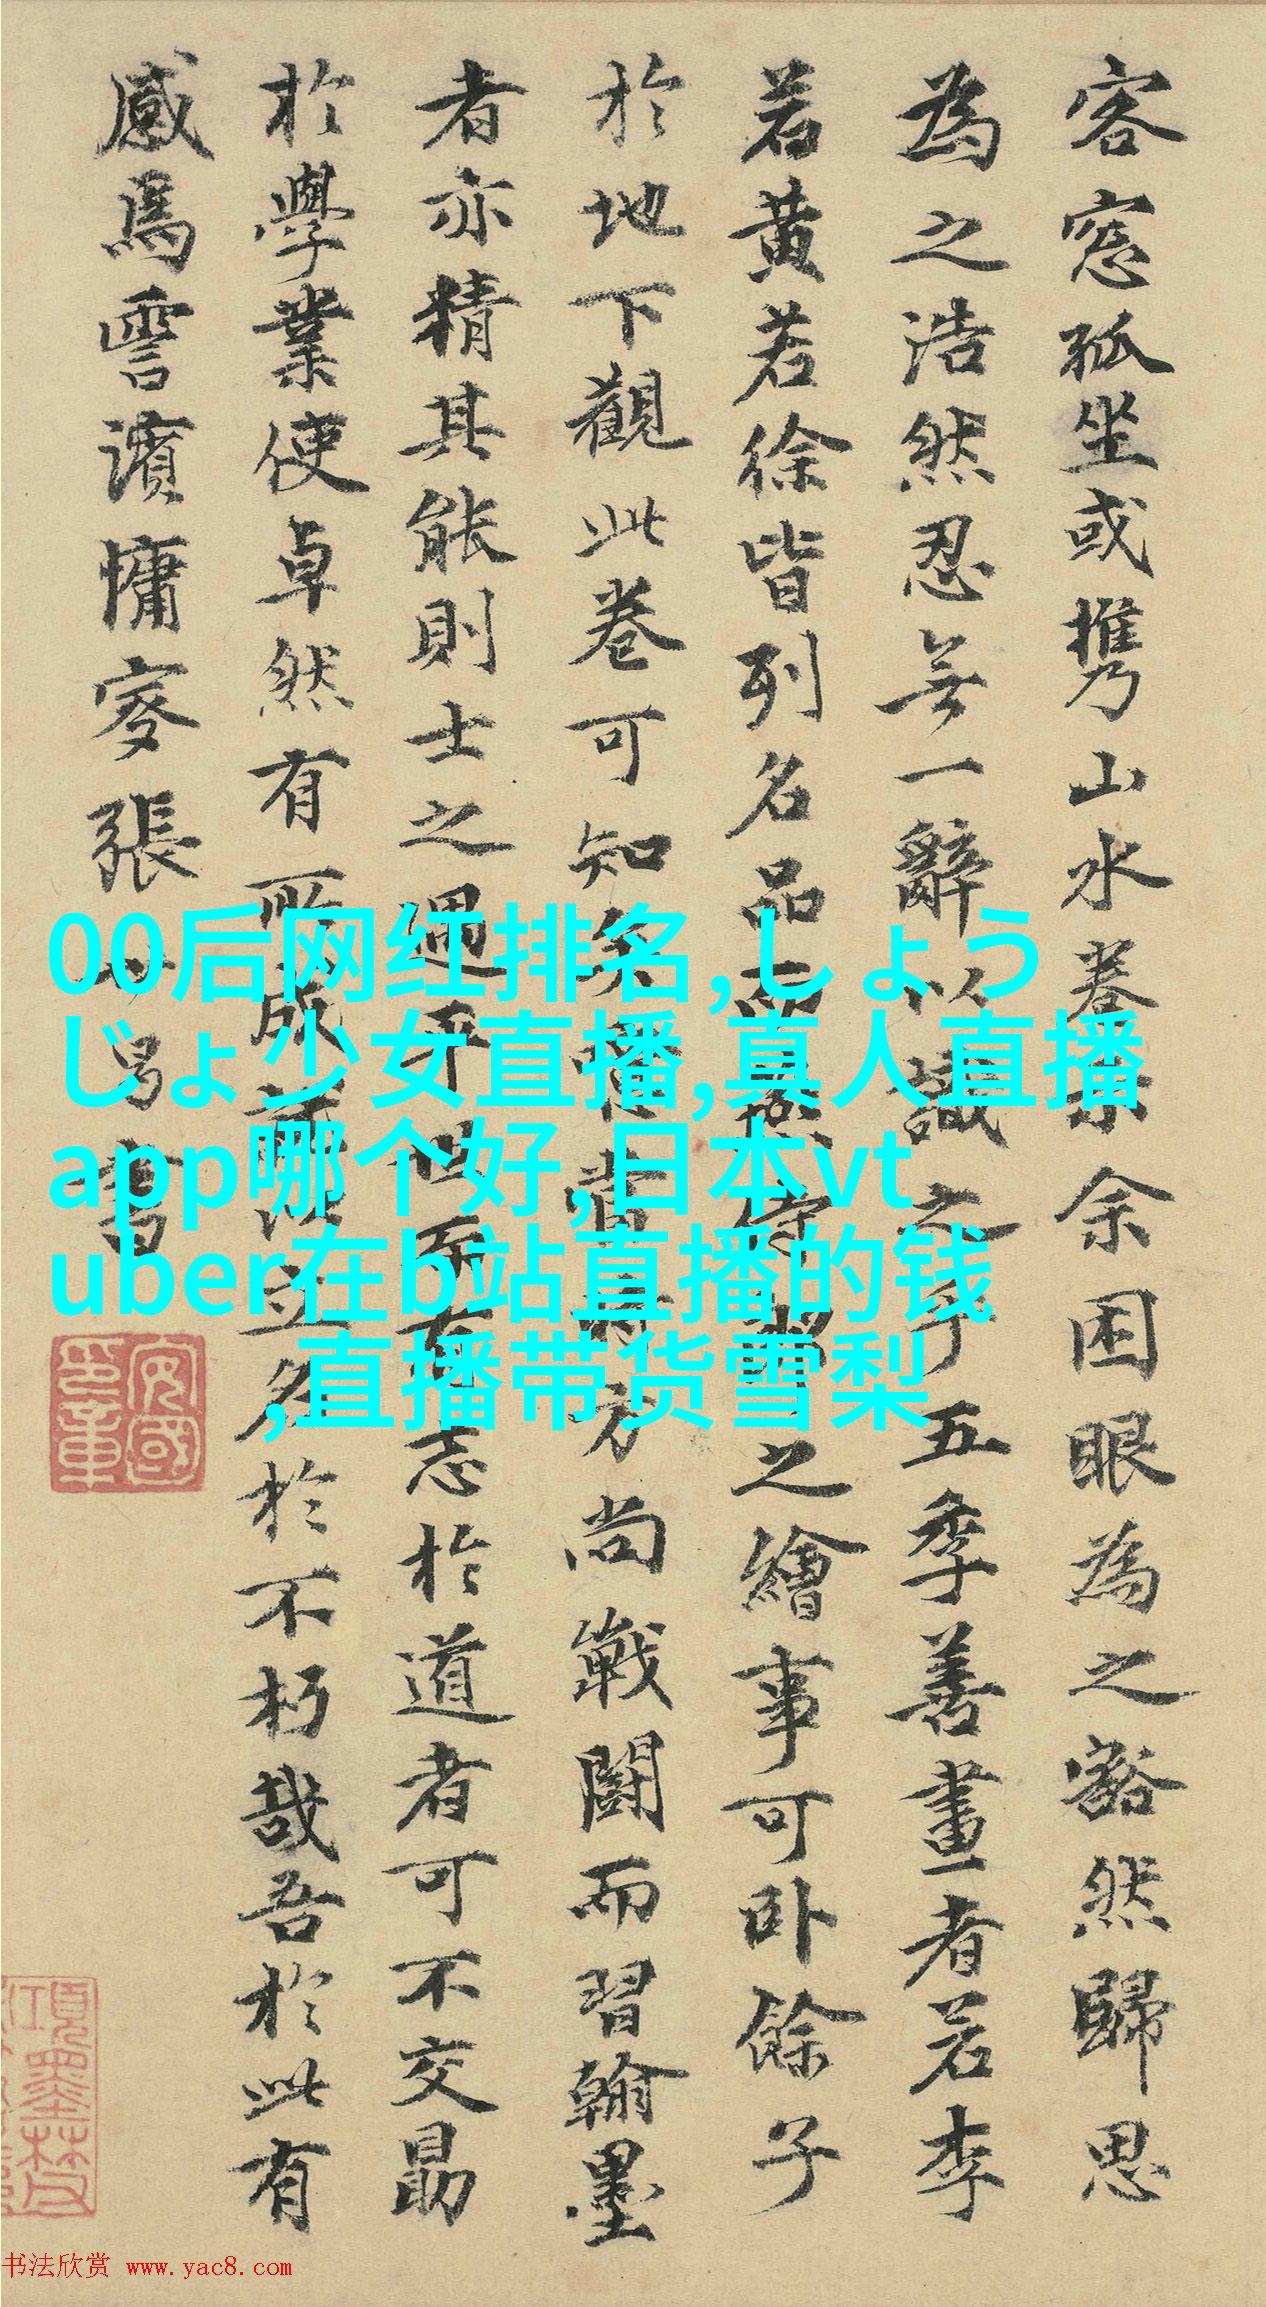 客窓孤坐或携山水卷示余困眼為之豁然歸思
為之浩然忍無一辭以識之乎五季善畫者若李
若黃若徐皆列名品而之繪事可卧餘子
於地下觀此卷可知矣當方尚戰鬭而習翰墨
者亦精其能則士之遇平世而有志於道者可不交勗
於學業使卓然有所成立名於不朽哉吾於此有
感焉霅濱慵叟張書
00后网红排名,しょう
じょ少女直播,真人直播
app哪个好,日本vt
uber在b站直播的钱
,直播带货雪梨
书法欣赏 www.yac8.com